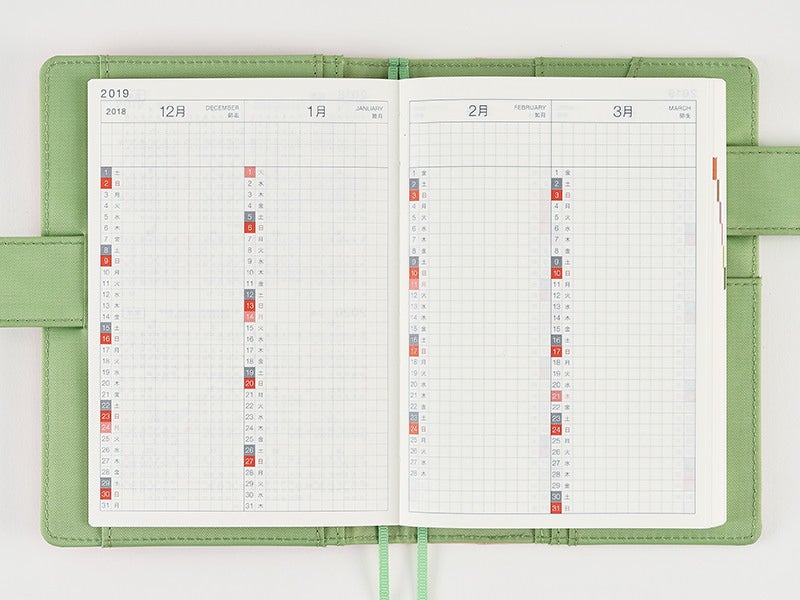 2019
2018 12月 DECEMBER 師走
1 土
2 日
3 月
4 火
5 水
6 木
7 金
8 土
9 日
10 月
11 火
12 水
13 木
14 金
15 土
16 日
17 月
18 火
19 水
20 木
21 金
22 土
23 日
24 月
25 火
26 水
27 木
28 金
29 土
30 日
31 月
1月 JANUARY 睦月
1 火
2 水
3 木
4 金
5 土
6 日
7 月
8 火
9 水
10 木
11 金
12 土
13 日
14 月
15 火
16 水
17 木
18 金
19 土
20 日
21 月
22 火
23 水
24 木
25 金
26 土
27 日
28 月
29 火
30 水
31 木
2月 FEBRUARY 如月
1 金
2 土
3 日
4 月
5 火
6 水
7 木
8 金
9 土
10 日
11 月
12 火
13 水
14 木
15 金
16 土
17 日
18 月
19 火
20 水
21 木
22 金
23 土
24 日
25 月
26 火
27 水
28 木
3月 MARCH 弥生
1 金
2 土
3 日
4 月
5 火
6 水
7 木
8 金
9 土
10 日
11 月
12 火
13 水
14 木
15 金
16 土
17 日
18 月
19 火
20 水
21 木
22 金
23 土
24 日
25 月
26 火
27 水
28 木
29 金
30 土
31 日